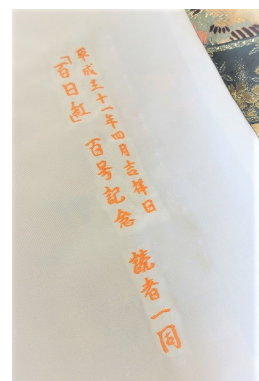 平成三十一年四月吉祥日
「百日紅」百号記念 読者一同